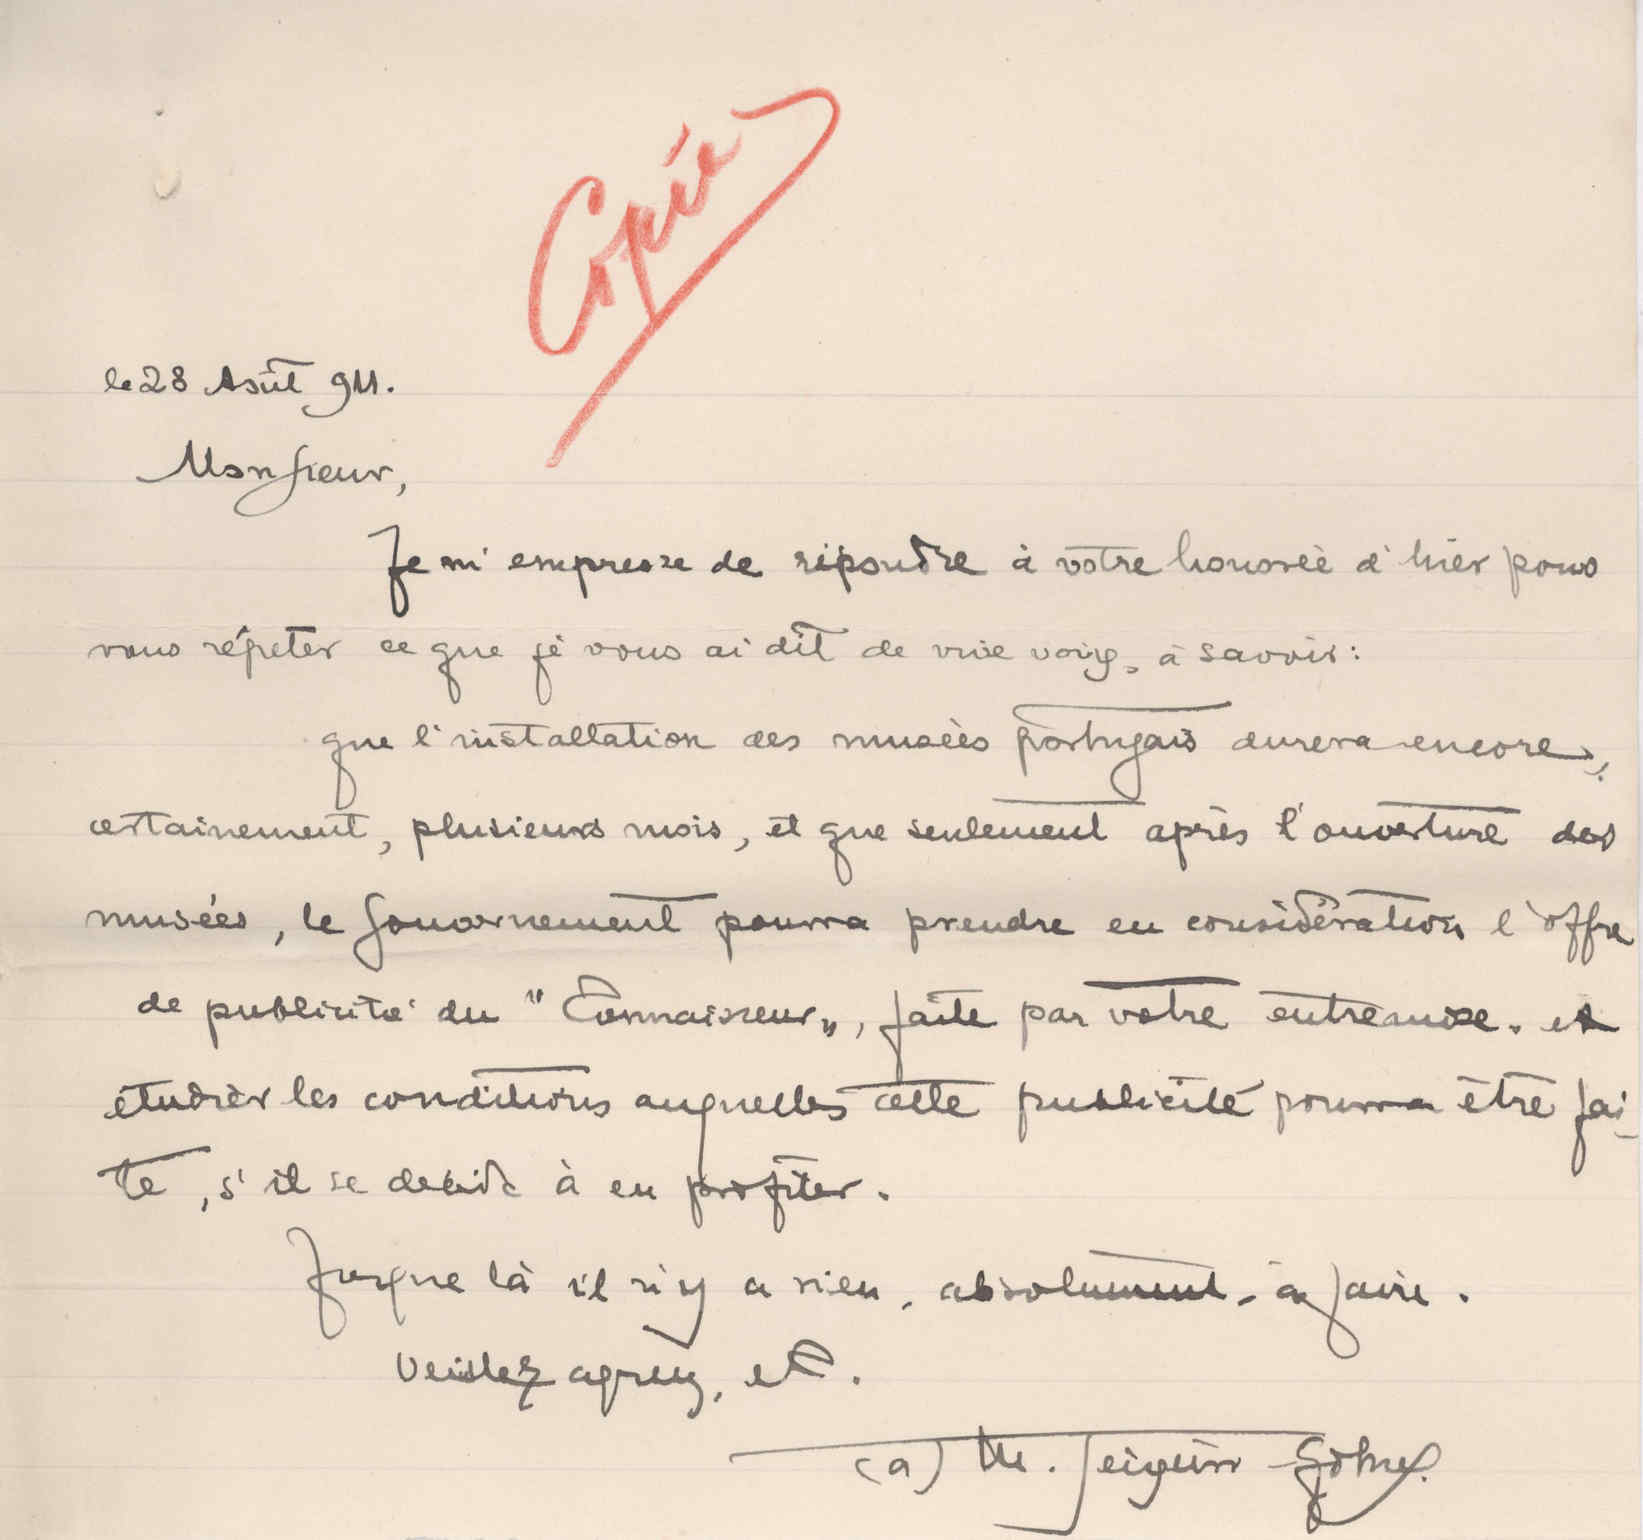 Copie
le 28 Août 911.
Monsieur,
Je m'empresse de répondre à votre honorée d'hier pour
vous répéter ce que je vous ai dit de vive voix, à savoir:
que l'installation des musées portugais durera encore,
certainement, plusieurs mois, et que seulement après l'ouverture des
musées, le Gouvernement pourra prendre en considération l'offre
de publicité du "Connaisseur„, faite par votre entremise. et
étudier les conditions auxquelles cette publicité pourra être fai-
te, s'il se decide à en profiter.
Jusque là il n'y a rien, absolument, à faire.
Veuillez agréez, etc.
(a) M.